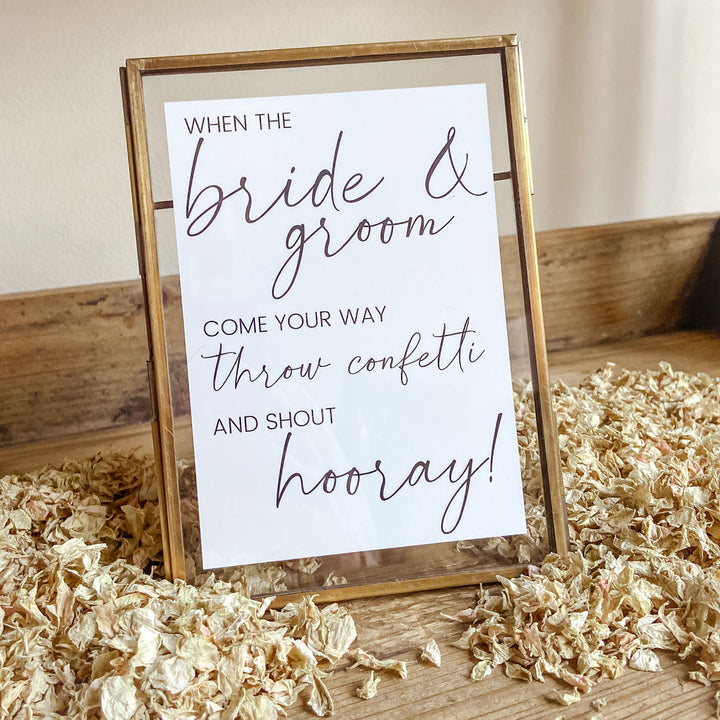 WHEN THE
bride &
groom
COME YOUR WAY
throw confetti
AND SHOUT
hooray!